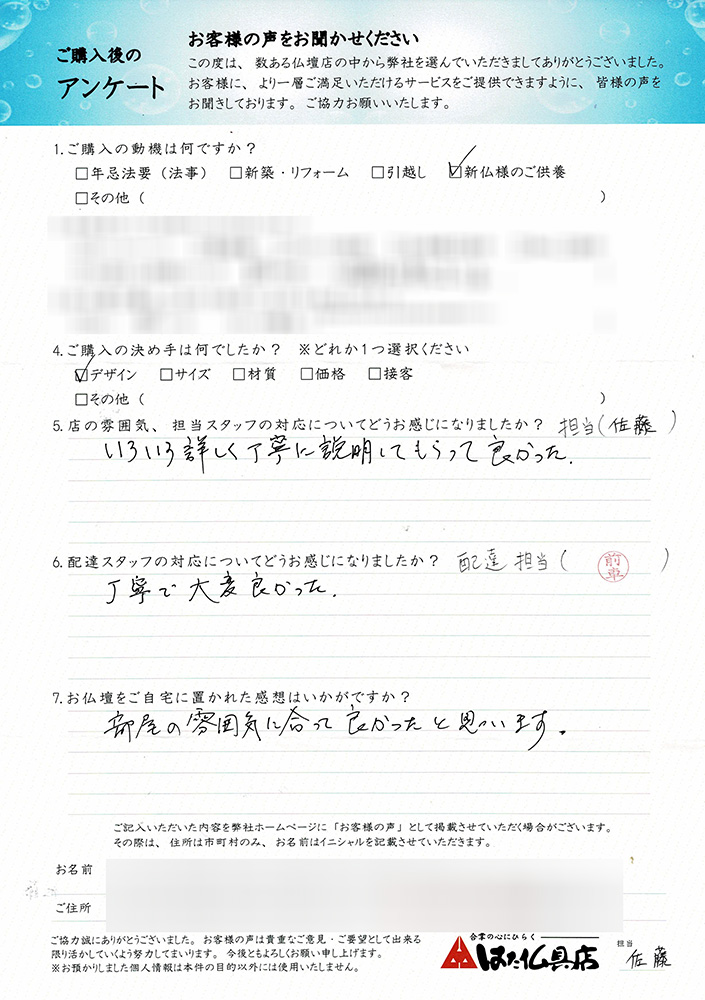 ご購入後の
アンケート
お客様の声をお聞かせください
この度は、数ある仏壇店の中から弊社を選んでいただきましてありがとうございました。
お客様に、より一層ご満足いただけるサービスをご提供できますように、皆様の声を
お聞きしております。ご協力お願いいたします。
1.ご購入の動機は何ですか？
□年忌法要（法事） □新築・リフォーム □引越し ☑新仏様のご供養
□その他（ ）
4.ご購入の決め手は何でしたか？ ※どれか1つ選択ください
☑デザイン □サイズ □材質 □価格 □接客
□その他（ ）
5.店の雰囲気、担当スタッフの対応についてどうお感じになりましたか？ 担当（佐藤）
いろいろ詳しく丁寧に説明してもらって良かった.
6.配達スタッフの対応についてどうお感じになりましたか？ 配達担当（前車）
丁寧で大変良かった.
7.お仏壇をご自宅に置かれた感想はいかがですか？
部屋の雰囲気に合って良かったと思います。
ご記入いただいた内容を弊社ホームページに「お客様の声」として掲載させていただく場合がございます。
その際は、住所は市町村のみ、お名前はイニシャルを記載させていただきます。
お名前
ご住所
ご協力誠にありがとうございました。お客様の声は貴重なご意見・ご要望として出来る
限り活かしていくよう努力してまいります。今後ともよろしくお願い申し上げます。
※お預かりしました個人情報は本件の目的以外には使用いたしません。
合掌の心にひらく
はた仏具店
担当
佐藤